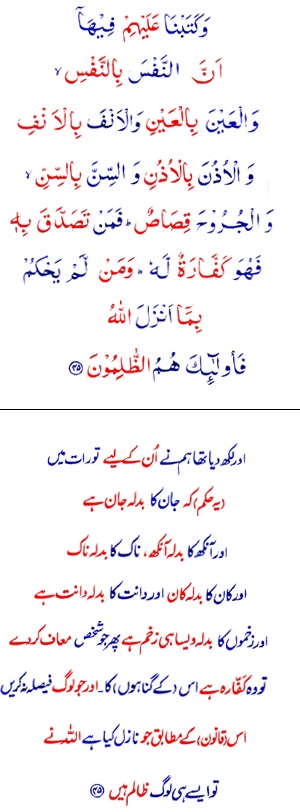 وَكَتَبْنَا عَلَيْهِمْ فِيْهَآ
اَنَّ النَّفْسَ بِالنَّفْسِ ۙ
وَالْعَيْنَ بِالْعَيْنِ وَالْاَنْفَ بِالْاَنْفِ
وَ الْاُذُنَ بِالْاُذُنِ وَ السِّنَّ بِالسِّنِّ ۙ
وَ الْجُرُوْحَ قِصَاصٌ ؕ فَمَنْ تَصَدَّقَ بِهٖ
فَهُوَ كَفَّارَةٌ لَّهٗ ؕ وَمَنْ لَّمْ يَحْكُمْ
بِمَآ اَنْزَلَ اللّٰهُ
فَاُولٰٓئِكَ هُمُ الظّٰلِمُوْنَ ﴿۴۵﴾
اور لکھ دیا تھا ہم نے اُن کے لیے تورات میں
(یہ حکم) کہ جان کا بدلہ جان ہے
اور آنکھ کا بدلہ آنکھ، ناک کا بدلہ ناک
اور کان کا بدلہ کان اور دانت کا بدلہ دانت ہے
اور زخموں کا بدلہ ویسا ہی زخم ہے پھر جو شخص معاف کر دے
تو وہ کفّارہ ہے اس (کے گناہوں) کا۔ اور جو لوگ فیصلہ نہ کریں
اس (قانون) کے مطابق جو نازل کیا ہے اللہ نے
تو ایسے ہی لوگ ظالم ہیں ﴿۴۵﴾